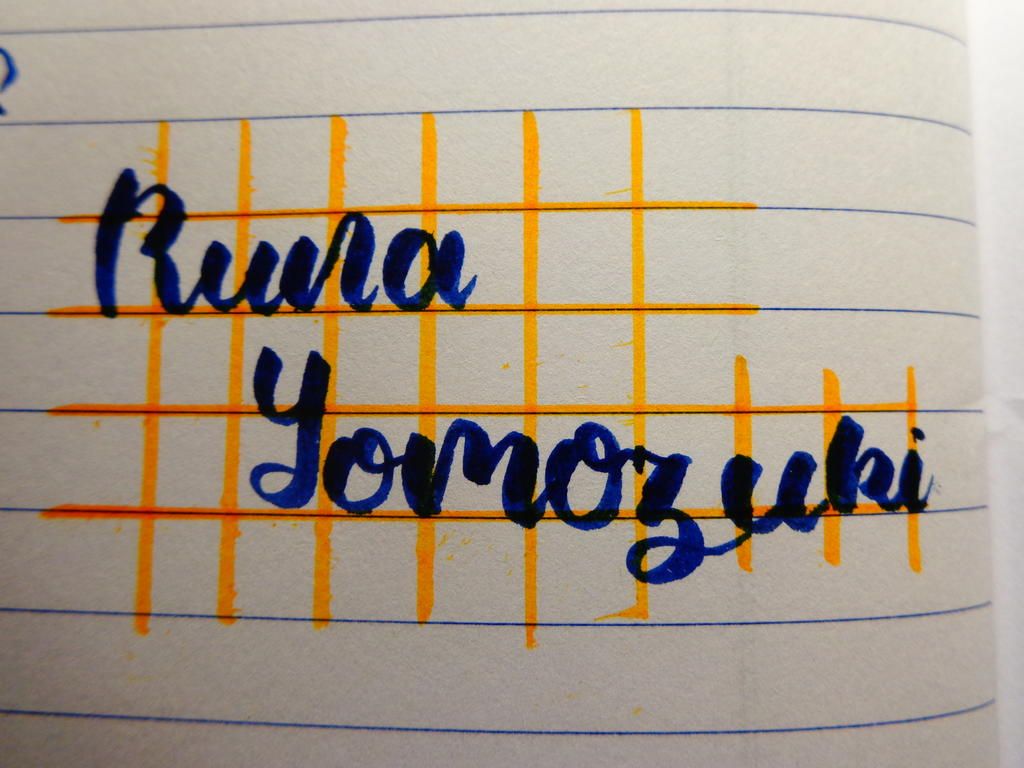 Runa
Yomozuki